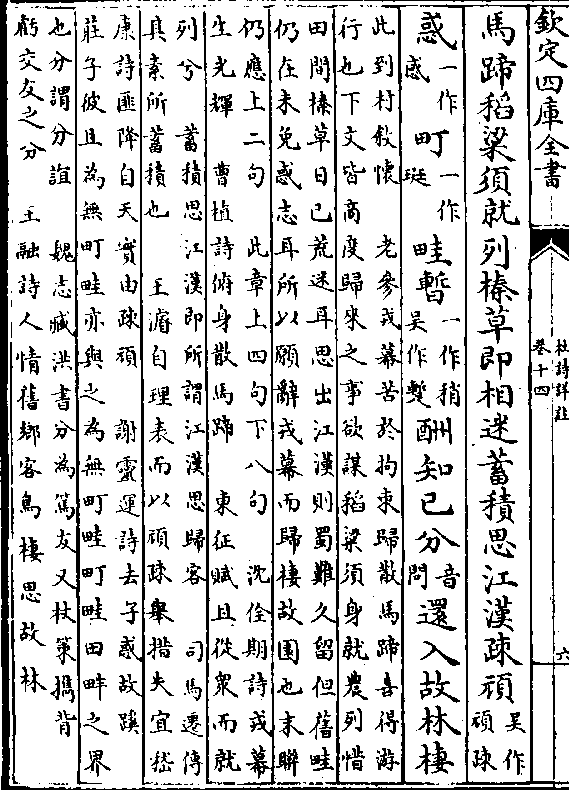 欽定四庫全書
杜詩詳註
卷十四
六
馬蹄稻粱須就列榛草即相迷蓄積思江漢疎頑吳作頑疎
惑一作感町一作珽畦暫一作稍吳作蹔酬知已分音問還入故林棲
此到村敘懷　老參戎幕苦於拘束歸散馬蹄喜得游
行也下文皆高度歸來之事欲謀稻粱須身就農列惜
田間榛草日已荒迷耳思出江漢則蜀難久留但舊畦
仍在未免惑志耳所以願辭戎幕而歸棲故園也末聯
仍應上二句　此章上四句下八句　沈佺期詩戎幕
生光輝　曹植詩俯身散馬蹄　東征賦且從衆而就
列兮　蓄積思江漢即所謂江漢思歸客　司馬遷傳
具素所蓄積也　王濬自理表而以頑疎舉措失宜嵇
康詩匪降自天實由疎頑　謝靈運詩去子惑故蹊
莊子彼且為無町畦亦與之為無町畦町畦田畔之界
也分謂分誼　魏志臧洪書分為篤友又杖策攜背
虧交友之分　王融詩人情舊鄉客鳥棲思故林